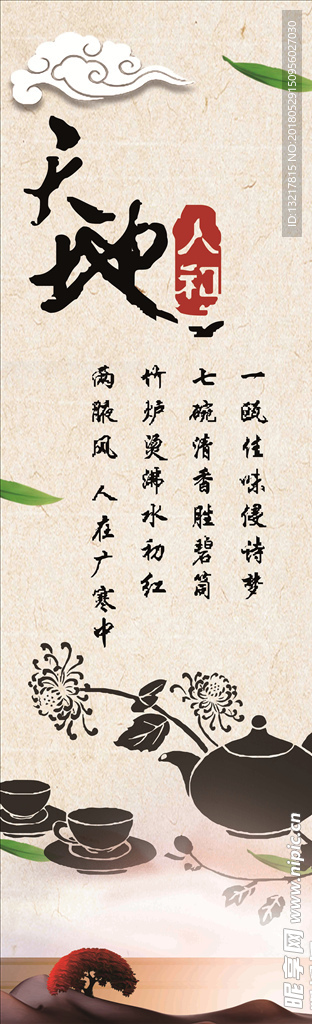 天地
人和
一瓯佳味侵诗梦
七碗清香胜碧筒
竹炉烫沸水初红
两腋风 人在广寒中
ID:13217815 NO:20180529150956027030
昵享网 www.nipic.cn